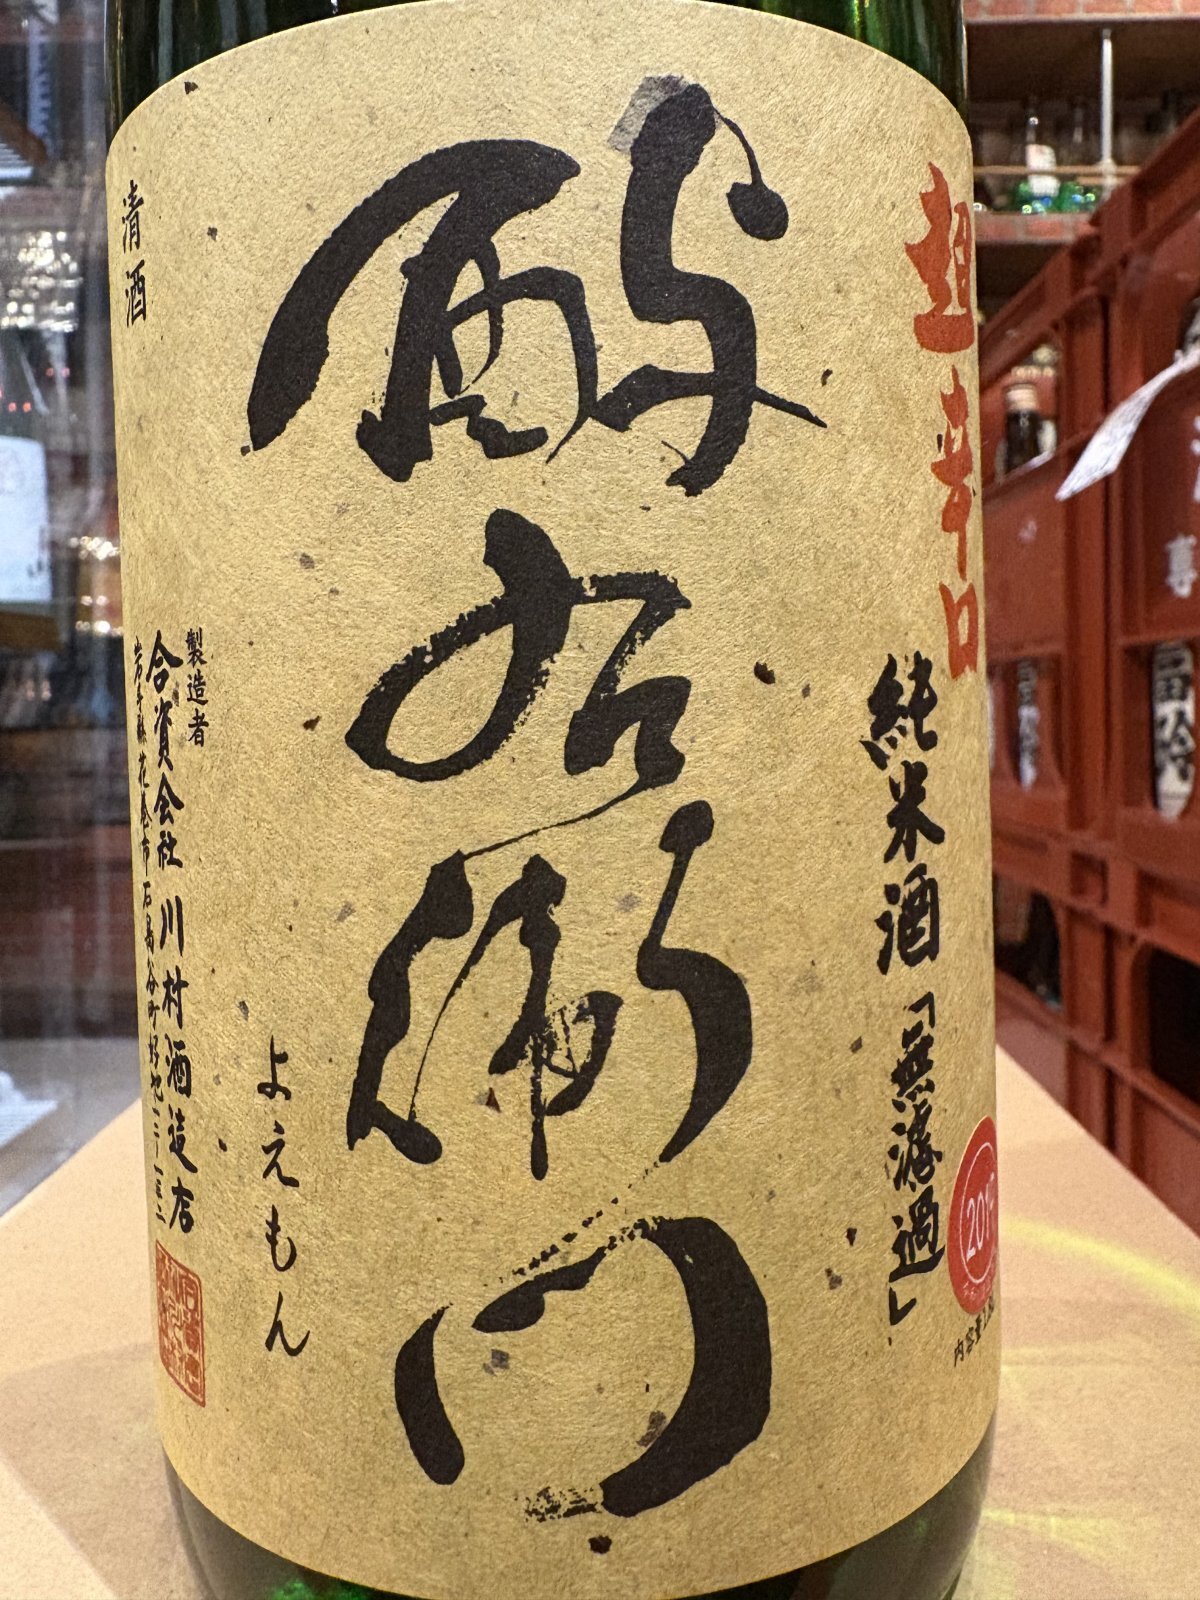 超辛口
純米酒「無濾過」
内容量1.8
酔右衛門
よえもん
清酒
製造者
合資会社 川村酒造店
岩手県花巻市石鳥谷町好地一二-一三二